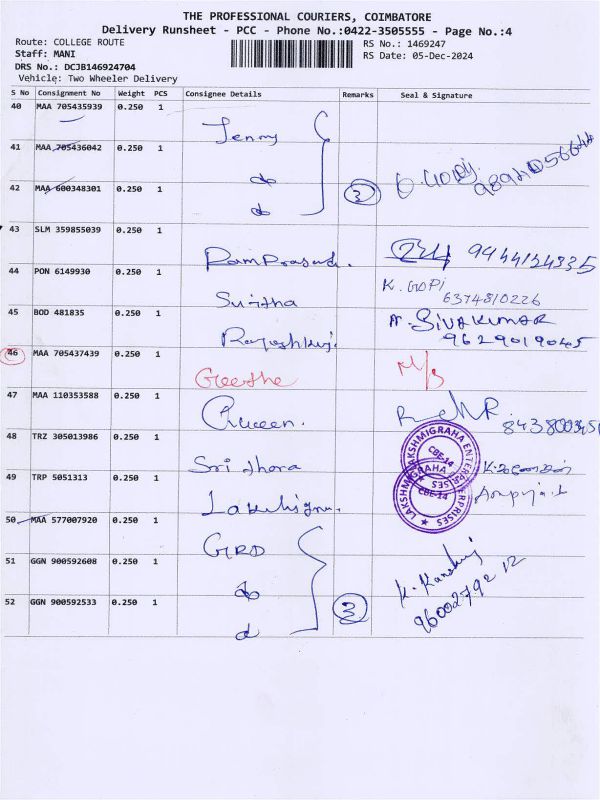 THE PROFESSIONAL COURIERS, COIMBATORE
Delivery Runsheet - PCC - Phone No.:0422-3505555 - Page No.:4
Route: COLLEGE ROUTE
RS No.: 1469247
Staff: MANI
RS Date: 05-Dec-2024
DRS No.: DCJB146924704
Vehicle: Two Wheeler Delivery
S No Consignment No Weight PCS Consignee Details Remarks Seal & Signature
40 MAA 705435939 0.250 1 Jenny
41 MAA 705436042 0.250 1 do
42 MAA 600348301 0.250 1 do 3
43 SLM 359855039 0.250 1 RamPrasad. 9444134335
44 PON 6149930 0.250 1 Suritha K. GOPI
6374810226
45 BOD 481835 0.250 1 A. SIVAKUMAR
9629019045
46 MAA 705437439 0.250 1 Geetha
47 MAA 110353588 0.250 1 Queen.
48 TRZ 305013986 0.250 1 Sridhara
49 TRP 5051313 0.250 1
LAKSHMIGRAHA ENTERPRISES
CBE-14
50 MAA 577007920 0.250 1 GRD
51 GGN 900592608 0.250 1 do
52 GGN 900592533 0.250 1 d 3